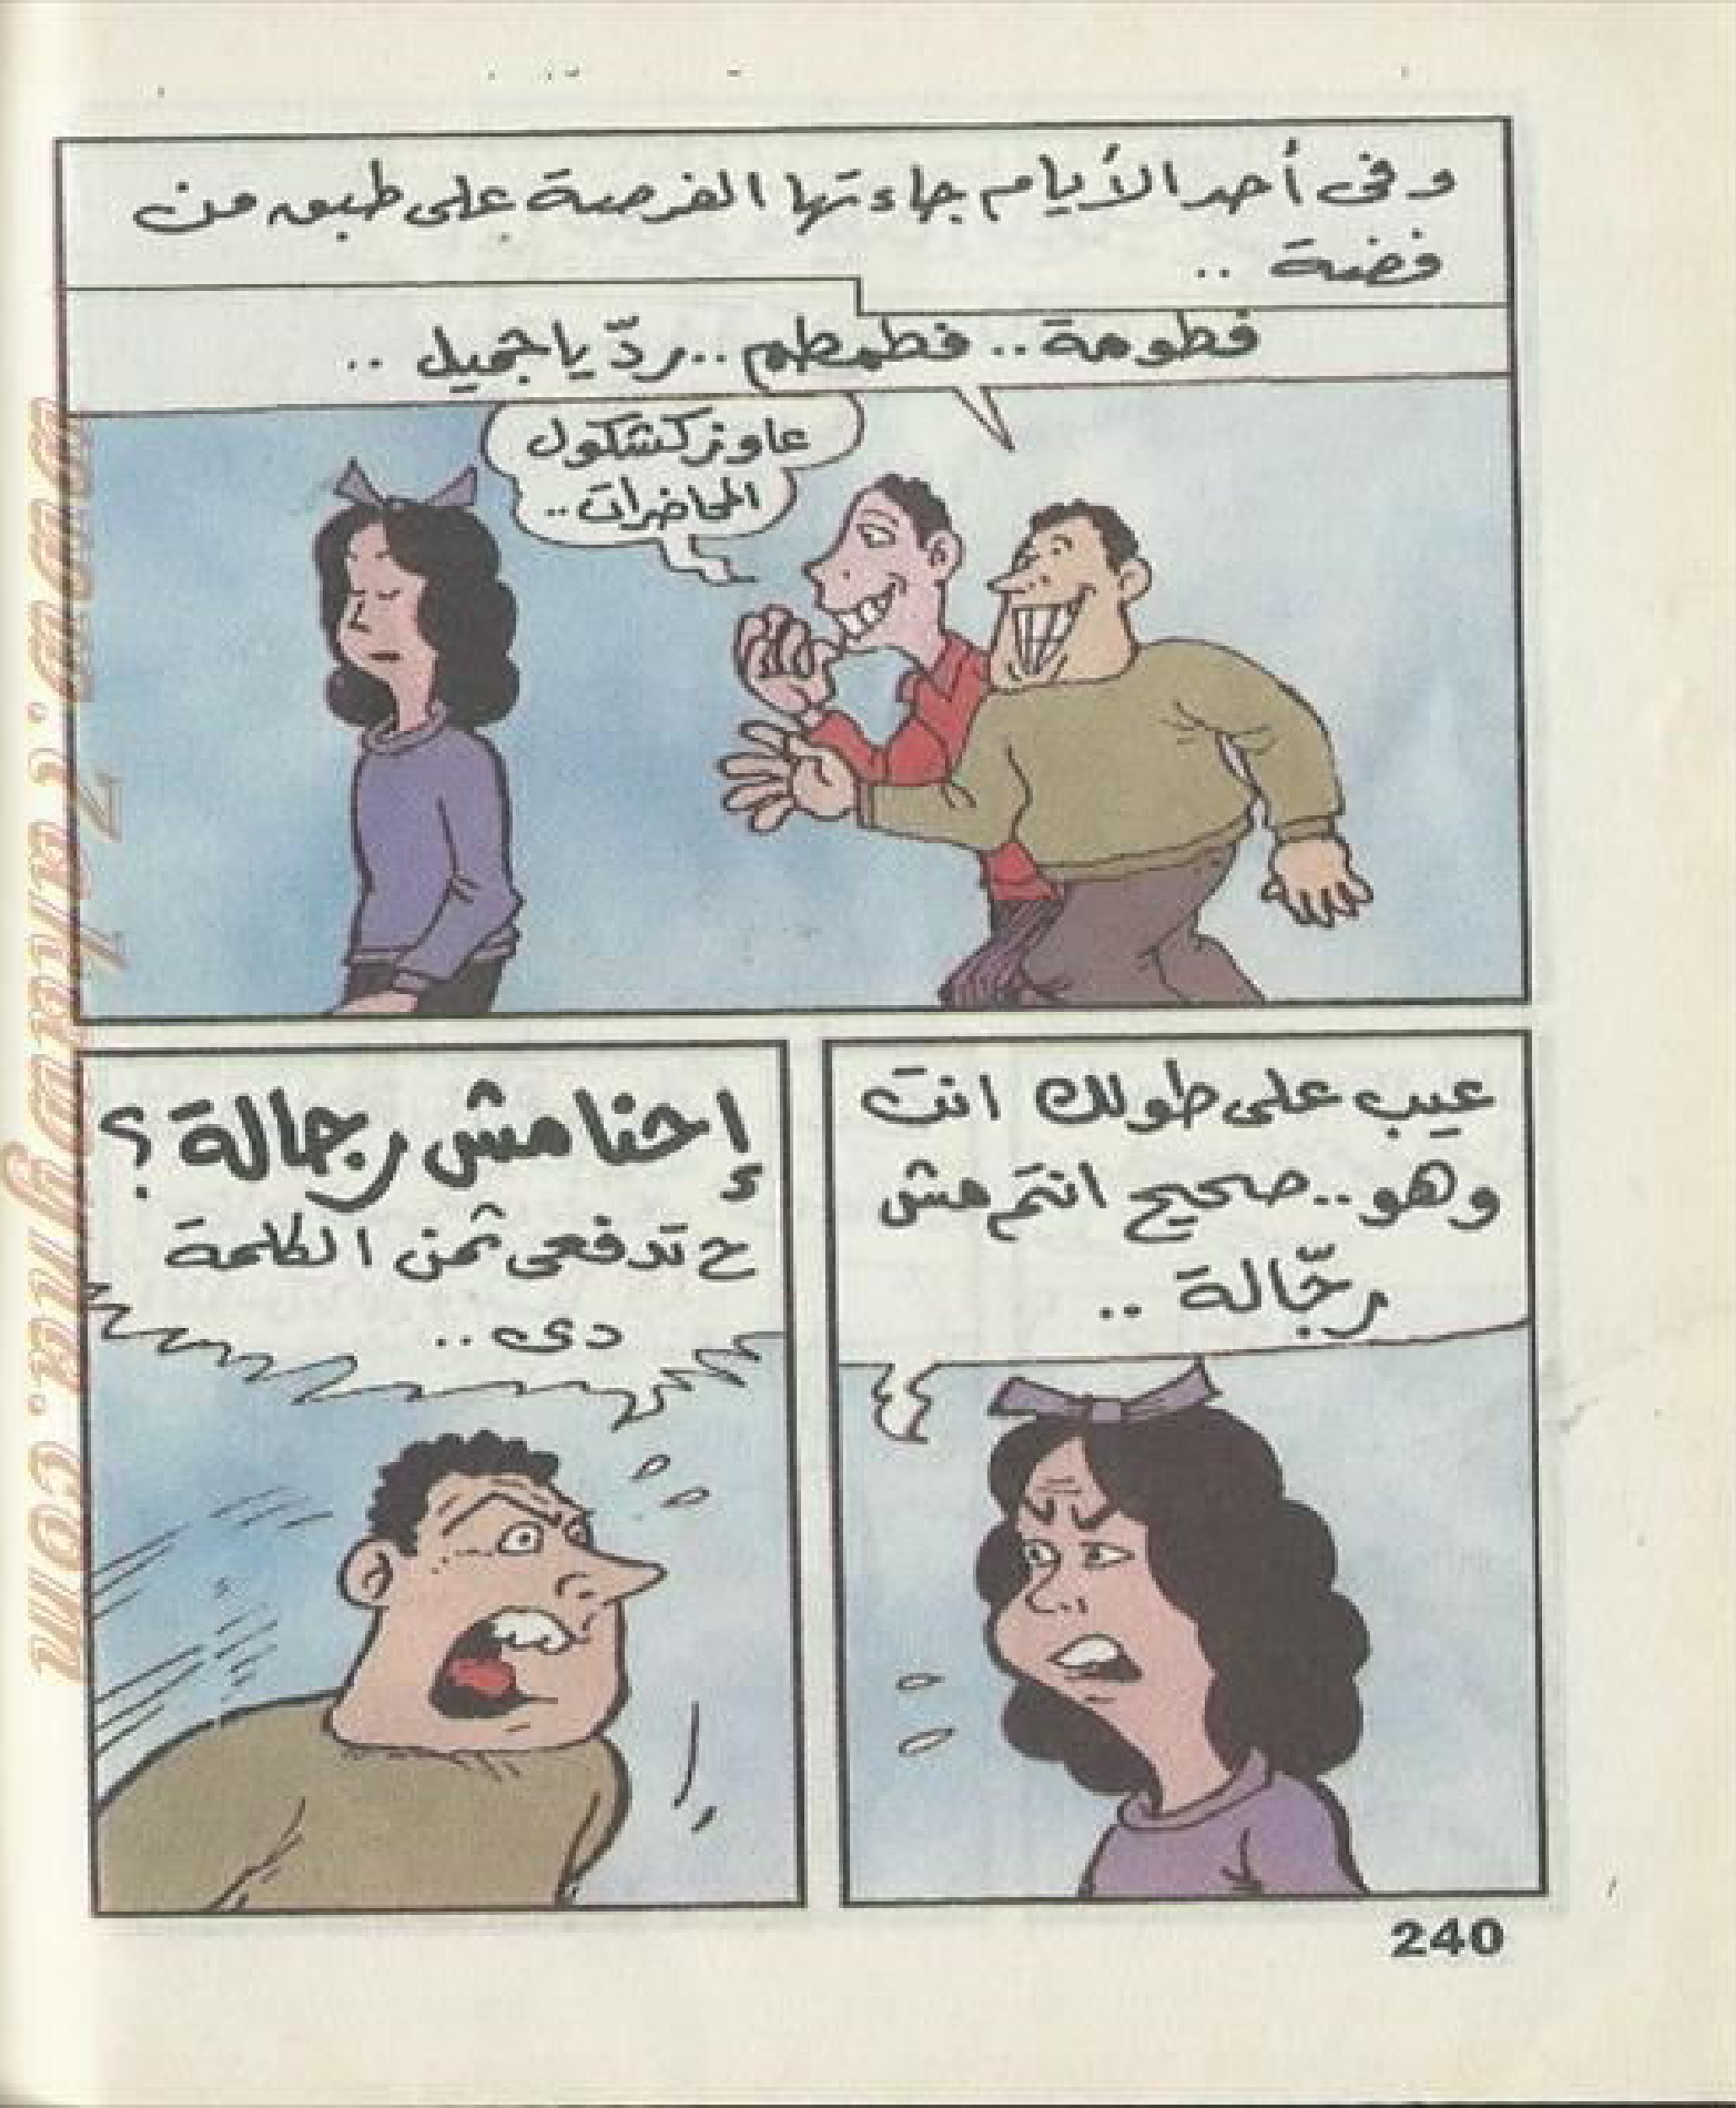 وفى أحد الأيام جاءتها الفرصة على طبق من
فضة ..
فطومة .. فطمطم .. ردّ يا جميل ..
عاوز كشكول
المحاضرات ..
عيب على طولك انت
وهو .. صحيح انتم مش
رجّالة ..
إحنا مش رجالة ؟
ح تدفعى ثمن الكلمة
دى ..
240